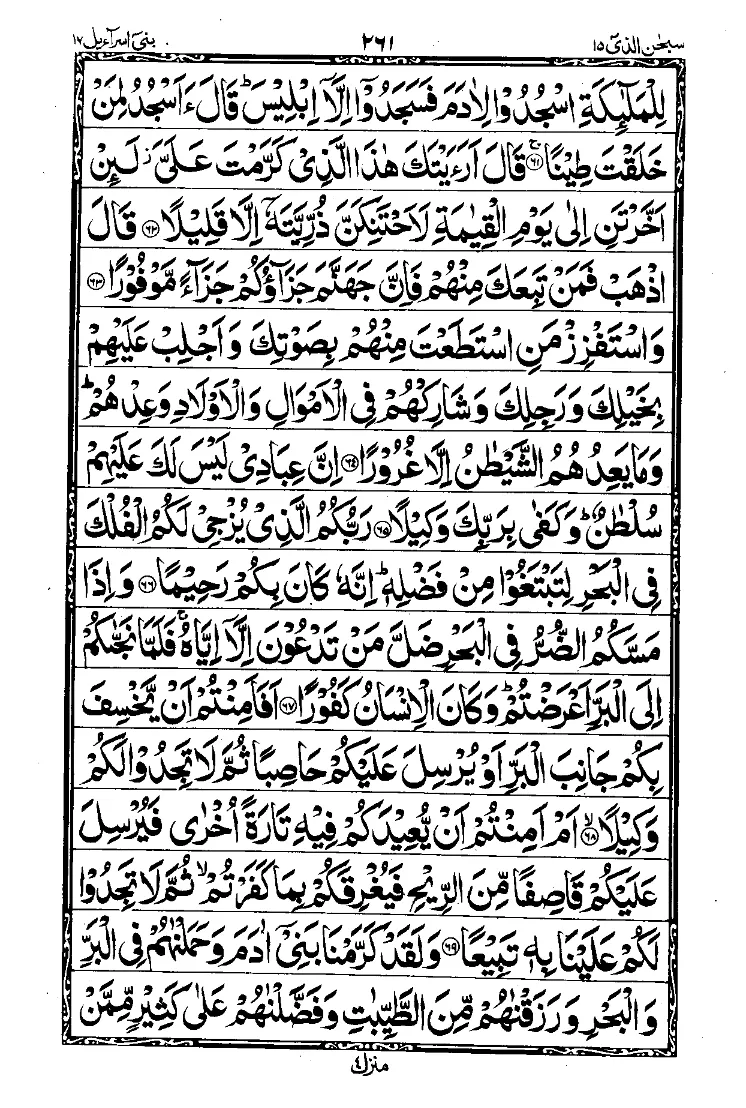 سبحٰن الذیٓ ١٥
٢٦١
بنیٓ اسرآءیل ١٧
لِلْمَلٰٓئِكَةِ اسْجُدُوْا لِاٰدَمَ فَسَجَدُوْۤا اِلَّاۤ اِبْلِيْسَ ؕ قَالَ ءَاَسْجُدُ لِمَنْ
خَلَقْتَ طِيْنًا ۚ‏﴿۶۱﴾ قَالَ اَرَءَيْتَكَ هٰذَا الَّذِىْ كَرَّمْتَ عَلَىَّ ز لَٮِٕنْ
اَخَّرْتَنِ اِلٰى يَوْمِ الْقِيٰمَةِ لَاَحْتَنِكَنَّ ذُرِّيَّتَهٗۤ اِلَّا قَلِيْلًا ﴿۶۲﴾ قَالَ
اذْهَبْ فَمَنْ تَبِعَكَ مِنْهُمْ فَاِنَّ جَهَنَّمَ جَزَآؤُكُمْ جَزَآءً مَّوْفُوْرًا ﴿۶۳﴾
وَاسْتَفْزِزْ مَنِ اسْتَطَعْتَ مِنْهُمْ بِصَوْتِكَ وَاَجْلِبْ عَلَيْهِمْ
بِخَيْلِكَ وَرَجِلِكَ وَشَارِكْهُمْ فِى الْاَمْوَالِ وَالْاَوْلَادِ وَعِدْهُمْ ؕ
وَمَا يَعِدُهُمُ الشَّيْطٰنُ اِلَّا غُرُوْرًا ﴿۶۴﴾ اِنَّ عِبَادِىْ لَيْسَ لَكَ عَلَيْهِمْ
سُلْطٰنٌ ؕ وَكَفٰى بِرَبِّكَ وَكِيْلًا ﴿۶۵﴾ رَبُّكُمُ الَّذِىْ يُزْجِىْ لَكُمُ الْفُلْكَ
فِى الْبَحْرِ لِتَبْتَغُوْا مِنْ فَضْلِهٖ ؕ اِنَّهٗ كَانَ بِكُمْ رَحِيْمًا ﴿۶۶﴾ وَاِذَا
مَسَّكُمُ الضُّرُّ فِى الْبَحْرِ ضَلَّ مَنْ تَدْعُوْنَ اِلَّاۤ اِيَّاهُ ۚ فَلَمَّا نَجّٰٮكُمْ
اِلَى الْبَرِّ اَعْرَضْتُمْ ؕ وَكَانَ الْاِنْسَانُ كَفُوْرًا ﴿۶۷﴾ اَفَاَمِنْتُمْ اَنْ يَّخْسِفَ
بِكُمْ جَانِبَ الْبَرِّ اَوْ يُرْسِلَ عَلَيْكُمْ حَاصِبًا ثُمَّ لَا تَجِدُوْا لَكُمْ
وَكِيْلًا ۙ‏﴿۶۸﴾ اَمْ اَمِنْتُمْ اَنْ يُّعِيْدَكُمْ فِيْهِ تَارَةً اُخْرٰى فَيُرْسِلَ
عَلَيْكُمْ قَاصِفًا مِّنَ الرِّيْحِ فَيُغْرِقَكُمْ بِمَا كَفَرْتُمْ ۙ ثُمَّ لَا تَجِدُوْا
لَكُمْ عَلَيْنَا بِهٖ تَبِيْعًا ﴿۶۹﴾ وَلَقَدْ كَرَّمْنَا بَنِىْۤ اٰدَمَ وَحَمَلْنٰهُمْ فِى الْبَرِّ
وَالْبَحْرِ وَرَزَقْنٰهُمْ مِّنَ الطَّيِّبٰتِ وَفَضَّلْنٰهُمْ عَلٰى كَثِيْرٍ مِّمَّنْ
منزل ٤